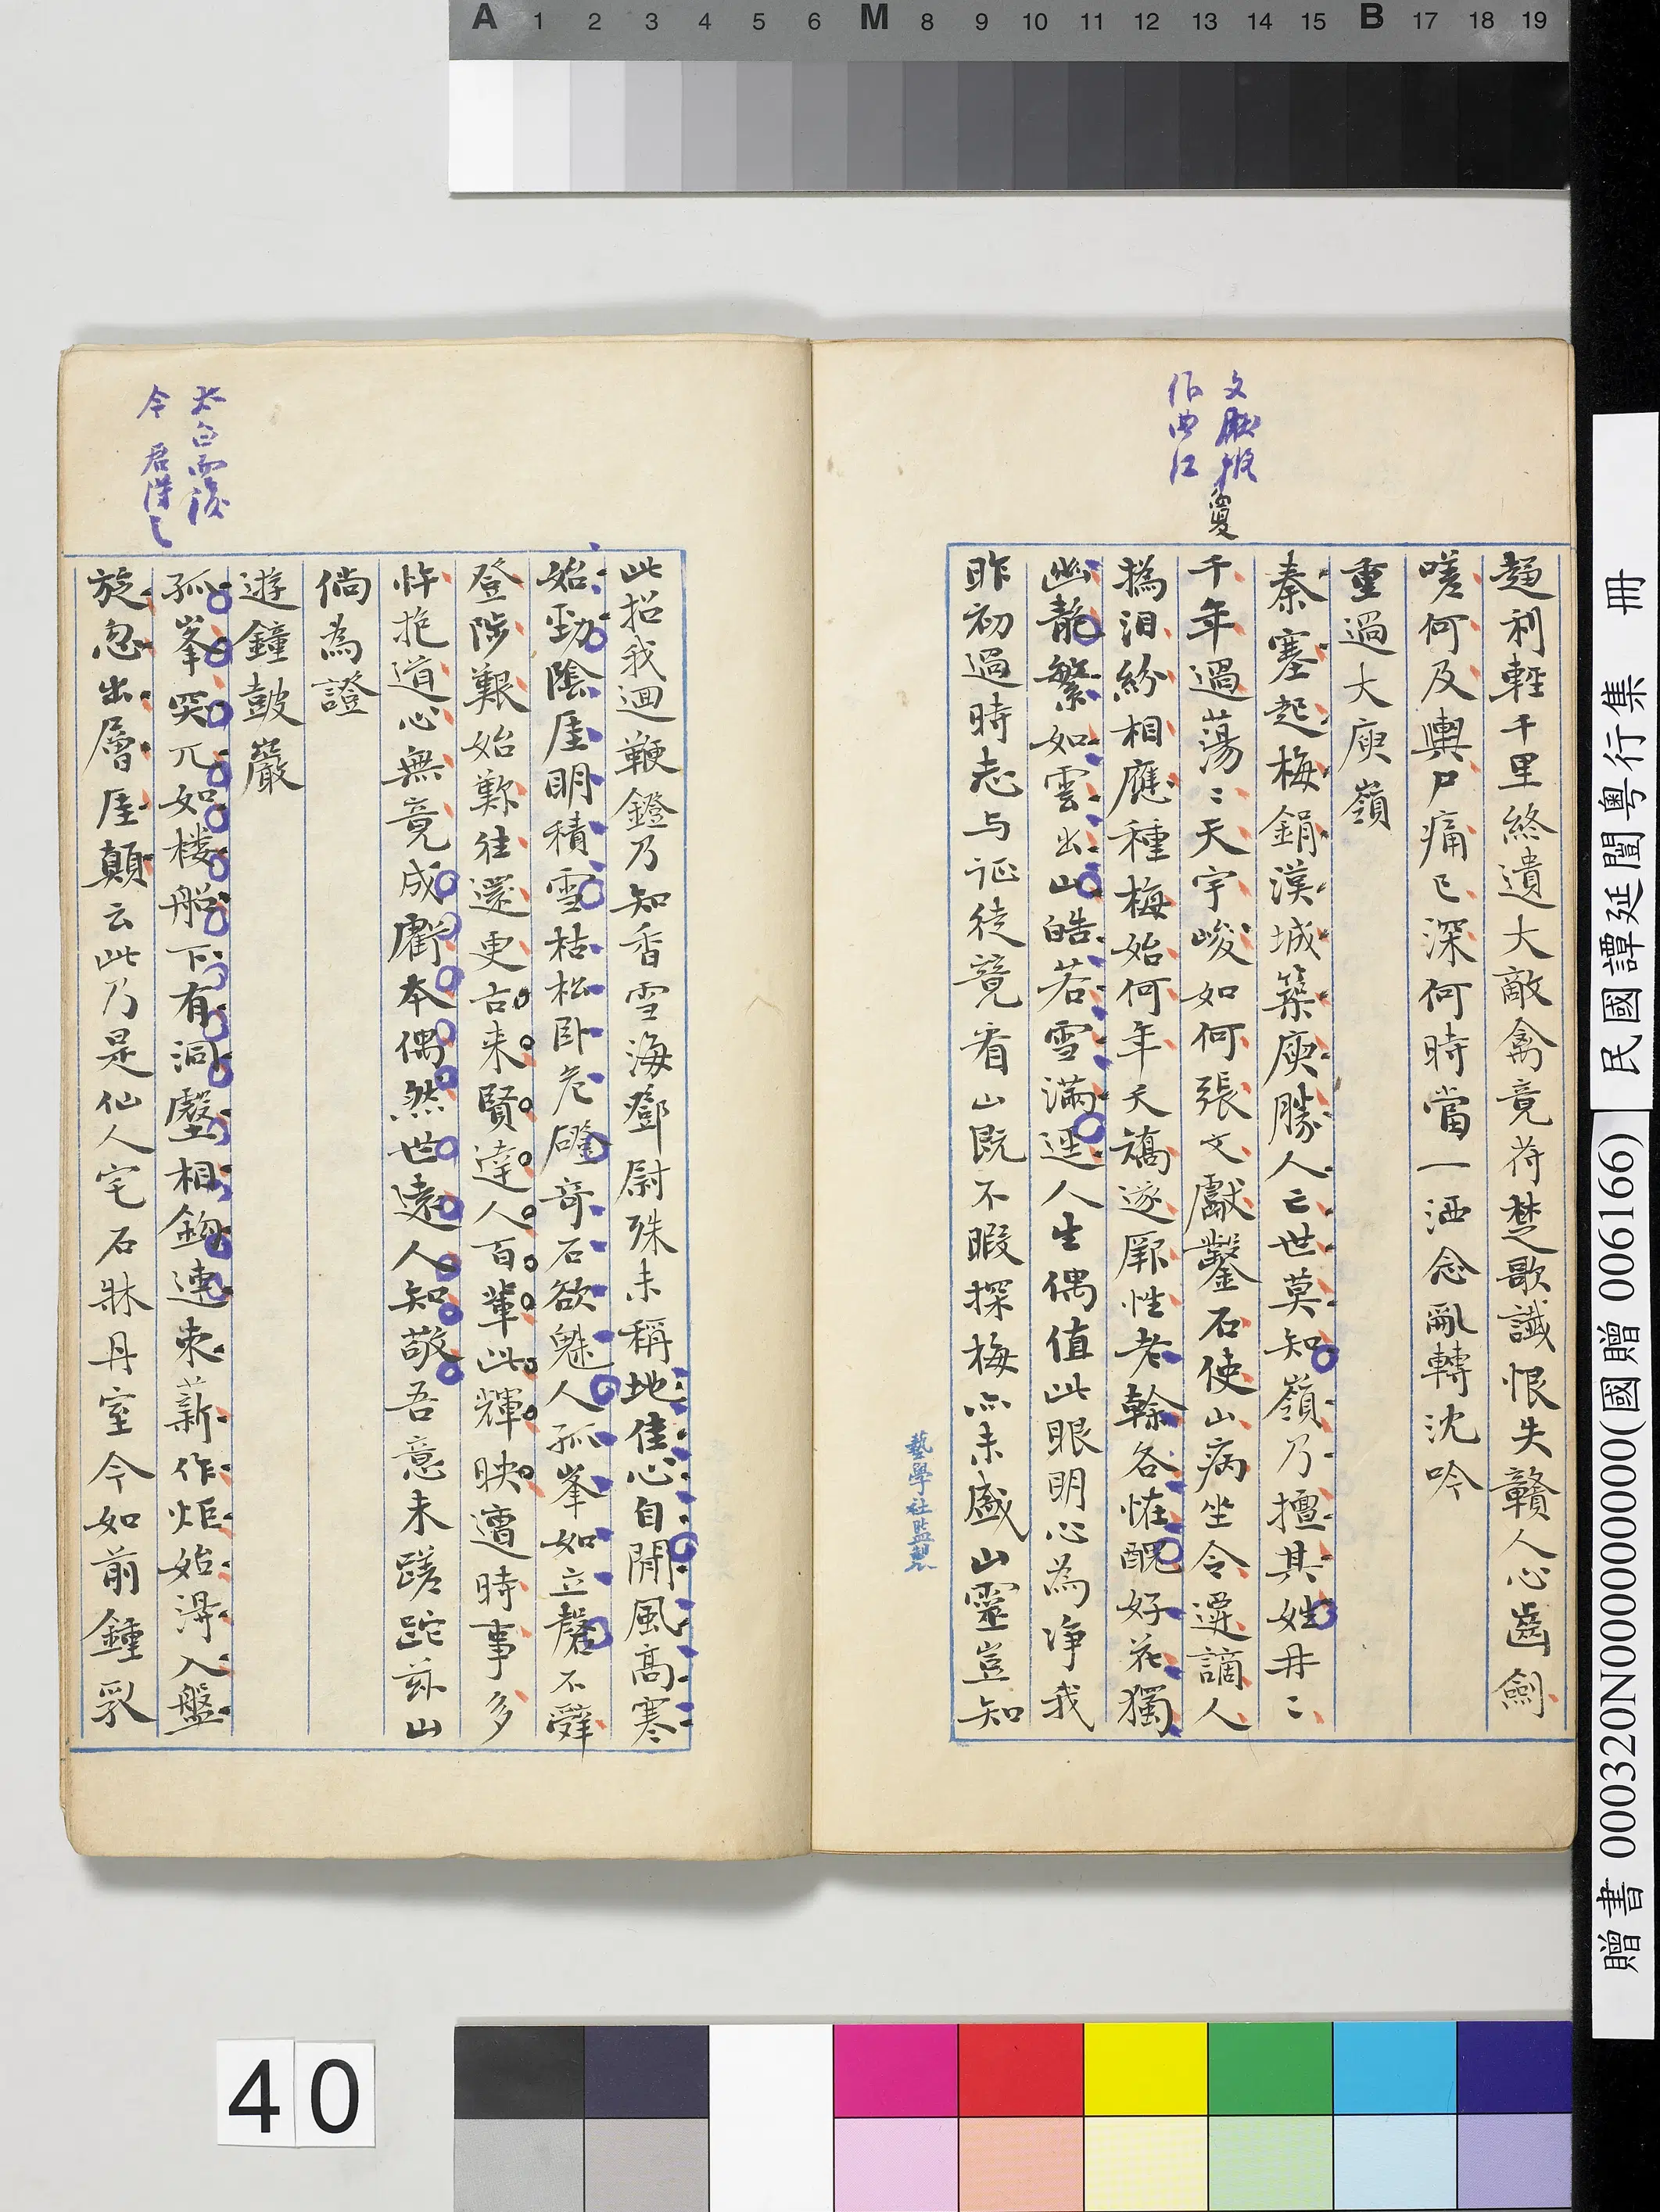 A 1 2 3 4 5 6 M 8 9 10 11 12 13 14 15 B 17 18 19
文獻擬
作曲江
趨利輕千里終遺大敵禽竟符楚歌讖恨失贛人心齒劍
嗟何及輿尸痛已深何時當一洒念亂轉沈吟
重過大庾嶺
秦塞起梅鋗漢城築庾勝人亡世莫知嶺乃擅其姓冉〻
千年過蕩〻天宇峻如何張文獻鑿石使山病坐令遷謫人
撝泪紛相應種梅始何年夭矯遂厥性老榦各恠醜好花獨
幽靚繁如雲出山皓若雪滿逕人生偶值此眼明心為淨我
昨初過時志与征徒競看山既不暇探梅亦未盛山靈豈知
藝學社監製
此招我迴鞭鐙乃知香雪海鄧尉殊未稱地佳心自閒風高寒
始勁陰厓明積雪枯松卧危磴奇石欲魅人孤峯如立磬不辭
登陟艱始歎往還更古來賢達人百輩此輝映遭時事多
忤抱道心無竟成虧本偶然世遠人知敬吾意未蹉跎茲山
倘為證
遊鐘鼓巖
孤峯突兀如樓船下有洞壑相鉤連束薪作炬始得入盤
旋忽出層厓顛云此乃是仙人宅石牀丹室今如前鍾乳
太白雲溪
今君得之
民國譚延闓粵行集 冊
贈書 000320N000000000(國贈 006166)
40